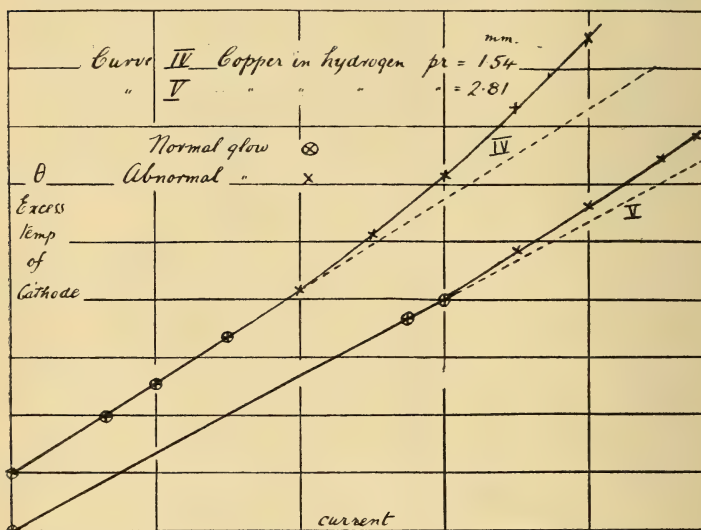 mm.
Curve IV Copper in hydrogen pr = 1.54
" V " " " " = 2.81
Normal glow ⊗
Abnormal " ×
θ
Excess
Temp
of
Cathode
IV
V
current